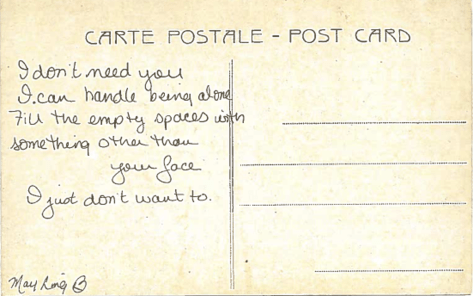 CARTE POSTALE - POST CARD
I don't need you
I can handle being alone
Fill the empty spaces with
something other than
your face
I just don't want to.